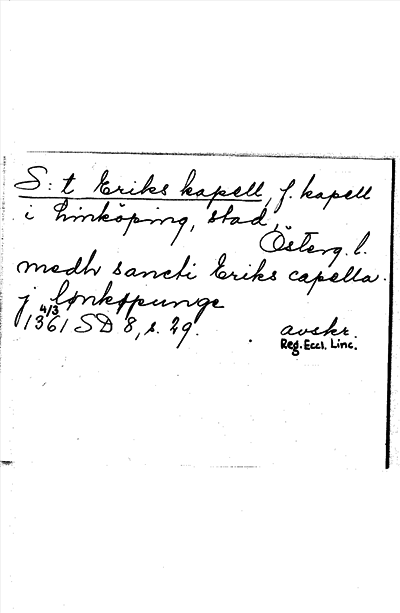 S:t Eriks kapell, f. kapell
i Linköping, stad,
Österg. l.
medh sancti Eriks capella
j lønkøpunge
4/3
1361 SD 8, s. 29. avskr.
Reg. Eccl. Linc.